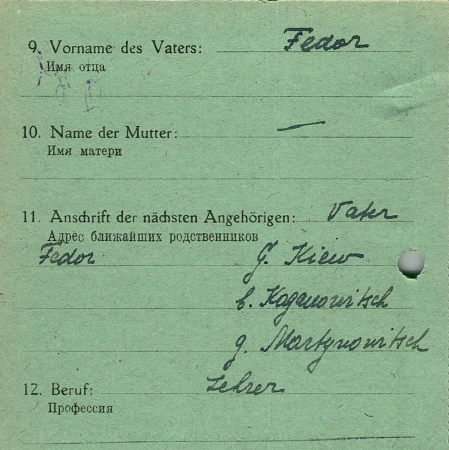 9. Vorname des Vaters: Fedor
Имя отца
10. Name der Mutter: —
Имя матери
11. Anschrift der nächsten Angehörigen: Vater
Адрес ближайших родственников
Fedor G. Kiew
b. Kaganowitsch
g. Martynowitsch
12. Beruf: Lehrer
Профессия